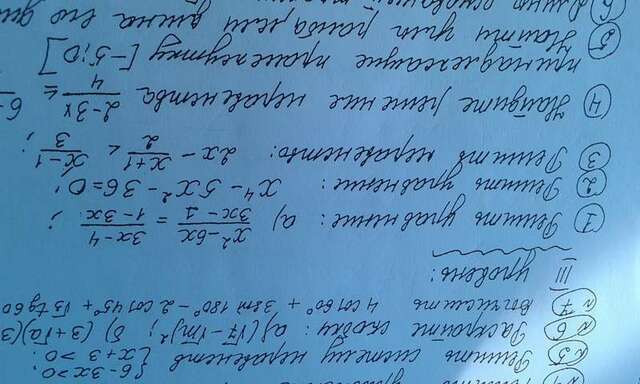 №5 Решить систему неравенств { 6-3x>0, x+3>0.
№6 Раскройте скобки: а) (√7-√m)²; б) (3+√a)(3
№7 Вычислить 4 cos 60° + 3 sin 180° - 2 cos 45° + √3 tg 60
III уровень:
① Решить уравнение: а) (x²-6x)/(3x-1) = (3x-4)/(1-3x);
② Решить уравнение: x⁴-5x²-36=0;
③ Решить неравенство: 2x - (x+1)/2 < (x-1)/3;
④ Найдите решения неравенства (2-3x)/4 ≤ 6-
принадлежащие промежутку [-5;0]
⑤ Найти углы ромба, если длина его
⑥ Длины оснований